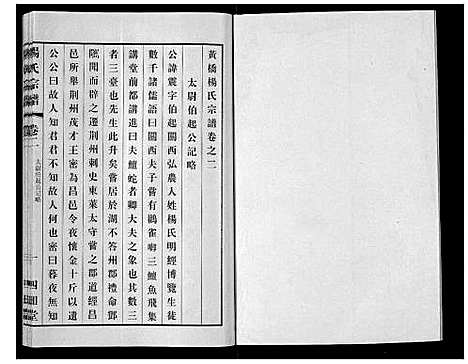 黃橋楊氏宗譜卷之二
太尉伯起公記略
公諱震字伯起關西弘農人姓楊氏明經博覽生徒
數千諸儒語曰關西夫子嘗有鸛雀啣三鱣魚飛集
講堂前都講進曰夫鱣蛇者卿大夫之象也其數三
者三臺也先生此升矣嘗居於湖不答州郡禮命鄧
隲聞而辟之遷荆州刺史東萊太守當之郡道經昌
邑所舉荆州茂才王密爲昌邑令夜懷金十斤以遺
公公曰故人知君君不知故人何也密曰暮夜無知
楊氏宗譜
卷二
太尉伯起公記略
一
四知堂